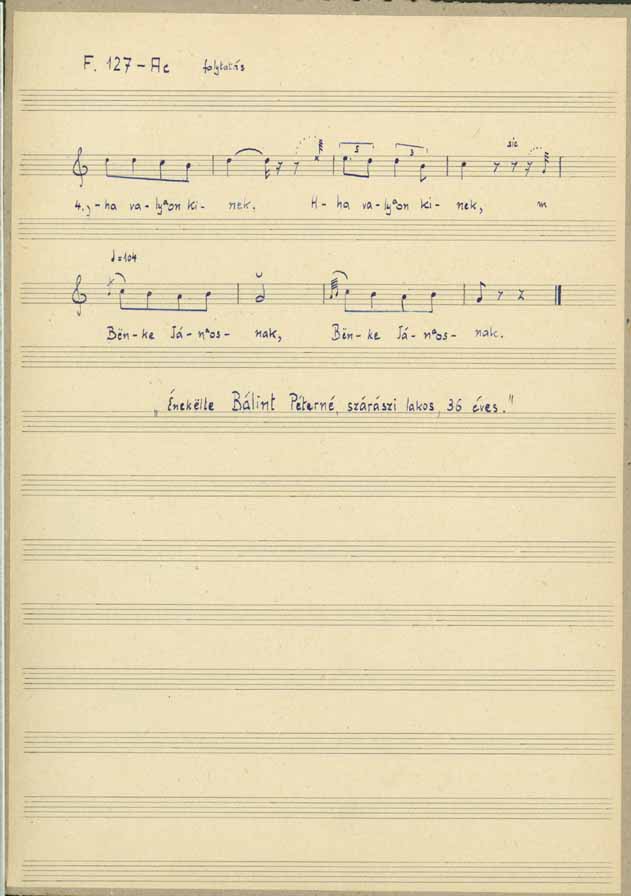 F. 127-Ac folytatás
5 3 sic
4.,-ha va-lyᵃon ki- nek. H-ha va-lyᵃon ki- nek, m
♩=104
Bën-ke Já-nᵃos- nak, Bën-ke Já-nᵃos- nak.
„Énekëlte Bálint Péterné, szárászi lakos, 36 éves."